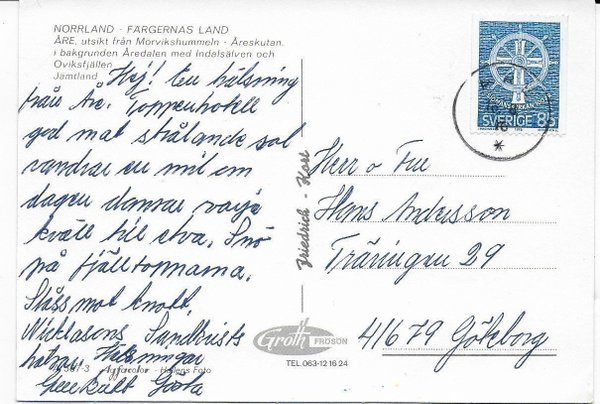 NORRLAND - FÄRGERNAS LAND
ÅRE, utsikt från Mörvikshummeln - Åreskutan,
i bakgrunden Åredalen med Indalsälven och
Oviksfjällen
Jämtland
Hej! En hälsning
från Åre. Toppenhotell
god mat strålande sol
vandrar en mil om
dagen dansar varje
kväll till elva. Snö
på fjälltopparna.
Slåss mot knott.
Nicklasons Sandkvists
Hälsningar
Gun Britt Gösta
Agfacolor - Hallens Foto
Friedrich - Karl
Groth FRÖSÖN
TEL. 063-12 16 24
SVERIGE 85
Herr o Fru
Hans Andersson
Träringen 29
41679 Göteborg